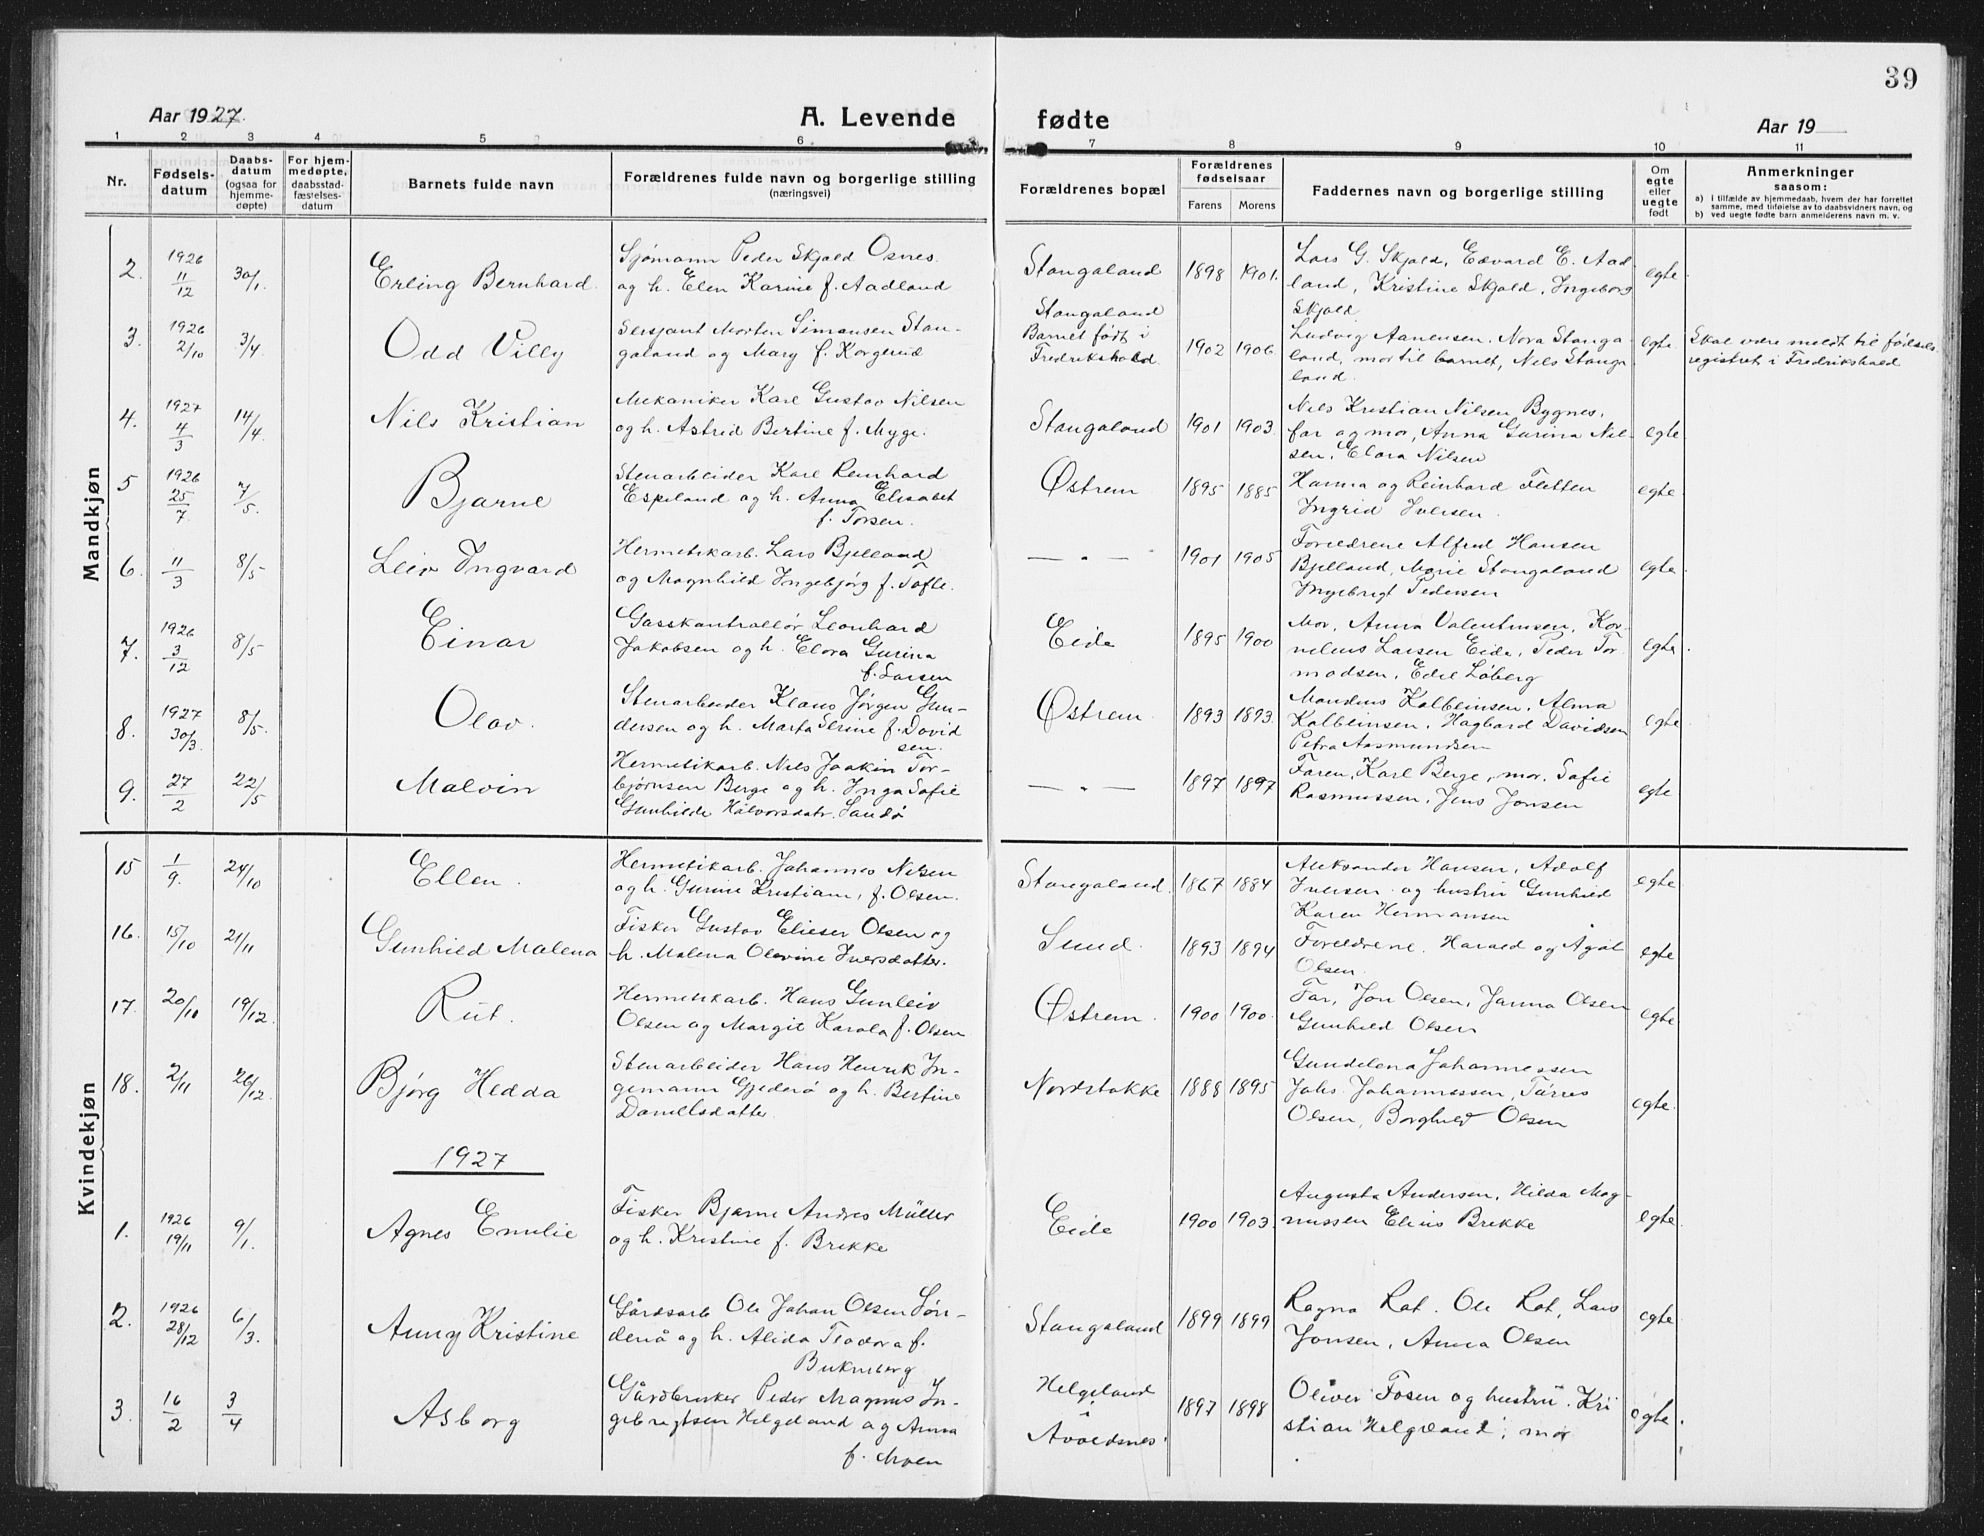 39
Aar 1927.
A. Levende
fødte
Aar 19
1 2 3 4 5 6 7 8 9 10 11
Nr.
Fødsels-
datum
Daabs-
datum
(ogsaa for
hjemme-
døpte)
For hjem-
medøpte,
daabsstad-
fæstelses-
datum
Barnets fulde navn
Forældrenes fulde navn og borgerlige stilling
(næringsvei)
Forældrenes bopæl
Forældrenes
fødselsaar
Farens Morens
Faddernes navn og borgerlige stilling
Om
egte
eller
uegte
født
Anmerkninger
saasom:
a) i tilfælde av hjemmedaab, hvem der har forrettet
samme, med tilføielse av to daabsvidners navn, og
b) ved uegte fødte barn anmelderens navn m. v.
Mandkjøn
2. 1926 11/12 30/1 Erling Bernhard.
Sjømann Peder Skjold Osnes
og h. Elen Karine f. Aadland
Stangaland 1898 1901.
Lars G. Skjold, Edvard E. Aad-
land, Kristine Skjold, Ingeborg
Skjold
egte
3. 1926 2/10 3/4 Odd Villy
Sersjant Morten Simonsen Stan-
galand og Mary f. Korgerud
Stangaland
Barnet født i
Fredrikshald
1902 1906.
Ludvig Aanensen. Nora Stanga-
land, mor til barnet, Nils Stanga-
land.
egte
Skal være meldt til fødsels-
registret i Fredrikshald
4. 1927 4/3 14/4 Nils Kristian
Mekaniker Karl Gustav Nilsen
og h. Astrid Bertine f. Myge.
Stangaland 1901 1903
Nils Kristian Nilsen Bygnes,
far og mor, Anna Gurina Nil-
sen, Elora Nilsen
egte
5 1926 25/7 7/5. Bjarne
Stenarbeider Karl Reinhard
Espeland og h. Anna Elisabet
f. Torsen.
Østrem 1895 1885
Hanna og Reinhard Fletten
Ingrid Iversen.
egte
6. 11/3 8/5 Leiv Ingvard
Hermetikarb. Lars Bjelland
og Magnhild Ingebjørg f. Tofte.
— „ — 1901 1905
Foreldrene Alfred Hansen
Bjelland, Marie Stangaland
Ingebrigt Pedersen
egte
7. 1926 3/12 8/5 Einar
Gasskontrollør Leonhard
Jakobsen og h. Elora Gurina
f. Larsen
Eide 1895 1900
Mor, Anna Valentinsen, Kor-
nelius Larsen Eide, Peder Tor-
modsen, Edel Løberg
egte
8. 1927 30/3 8/5. Olav.
Stenarbeider Klaus Jørgen Gun-
dersen og h. Marta Serine f. David
sen.
Østrem 1893 1893
Mandius Kolbeinsen, Alma
Kolbeinsen, Hagbard Davidsen
Petra Aasmundsen
egte
9. 27/2 22/5 Malvin
Hermetikarb. Nils Joakin Tor-
bjørnsen Berge og h. Inga Sofie
Gunhilde Halvorsdatr. Sandø
— „ — 1897 1897
Faren, Karl Berge, mor, Sofie
Rasmussen, Jens Jonsen
egte
Kvindekjøn
15 1/9. 24/10 Ellen.
Hermetikarb. Johannes Nilsen
og h. Gurine Kristiane, f. Olsen.
Stangaland 1867 1884
Aleksander Hansen, Adolf
Iversen og hustru Gunhild
Karen Hermansen
egte
16. 15/10 21/11 Gunhild Malena
Fisker Gustav Elieser Olsen og
h. Malena Olavine Iversdatter.
Sund. 1893 1894
Foreldrene. Harald og Agot
Olsen.
egte
17. 20/10 19/12. Rut.
Hermetikarb. Hans Gunleiv
Olsen og Margit Karola f. Olsen
Østrem. 1900 1900
Far, Jon Olsen, Janna Olsen
Gunhild Olsen
egte
18. 2/11 26/12. Bjørg Hedda
Stenarbeider Hans Henrik In-
gemann Gjederø og h. Bertine
Danielsdatter.
Nordstokke 1888 1895
Gundelena Johannessen
Johs. Johannessen, Tørres
Olsen, Borghild Olsen
egte.
1927
1. 1926 19/11 9/1. Agnes Emilie
Fisker Bjarne Andres Müller
og h. Kristine f. Brekke
Eide 1900 1903.
Augusta Andersen, Hilda Mag-
nussen Elius Brekke
egte
2. 1926 28/12 6/3. Anny Kristine
Gårdsarb Ole Johan Olsen Søn-
denå og h. Alida Teodora f.
Stangaland 1899 1899
Ragna Rot. Ole Rot, Lars
Jonsen, Anna Olsen
egte
3. 16/2 3/4 Asborg
Gårdbruker Peder Magnus In-
gebregtsen Helgeland og Anna
f. Moen
Helgeland
i
Avaldsnes
1897 1898
Oliver Fosen og hustru. Kri
stian Helgeland, mor
egte